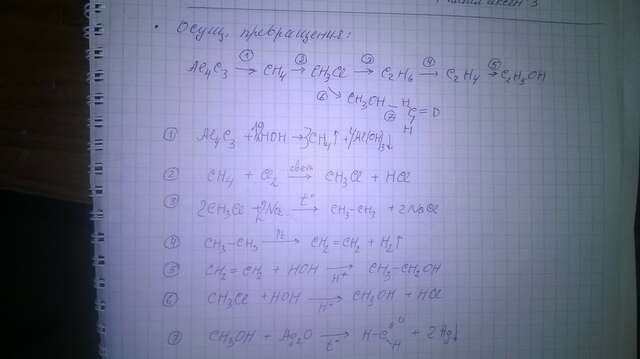 • Осущ. превращения:
Al₄C₃ ①→ CH₄ ②→ CH₃Cl ③→ C₂H₆ ④→ C₂H₄ ⑤→ C₂H₅OH
⑥ CH₃OH ⑦ H C = O H
① Al₄C₃ + 12HOH → 3CH₄↑ + 4Al(OH)₃↓
② CH₄ + Cl₂ свет→ CH₃Cl + HCl
③ 2CH₃Cl + 2Na t°→ CH₃-CH₃ + 2NaCl
④ CH₃-CH₃ → CH₂=CH₂ + H₂↑
⑤ CH₂=CH₂ + HOH H⁺→ CH₃-CH₂OH
⑥ CH₃Cl + HOH → CH₃OH + HCl
⑦ CH₃OH + Ag₂O t°→ H-C O H + 2Ag↓